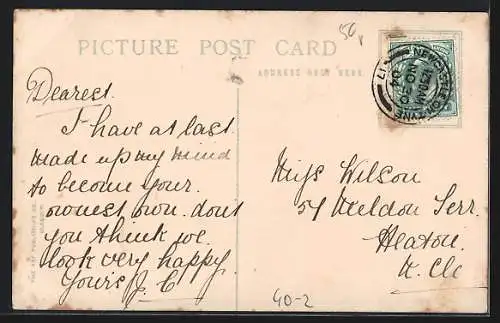 50p
PICTURE POST CARD
ADDRESS ONLY HERE.
NEWCASTLE ON TYNE
12 30 AM
NO 20
04
Dearest.
I have at last
made up my mind
to become your
ownest own. dont
you think we
look very happy
Yours J. C
Miss Wilson
54 Meldon Terr.
Heaton.
N. Cle
40-2